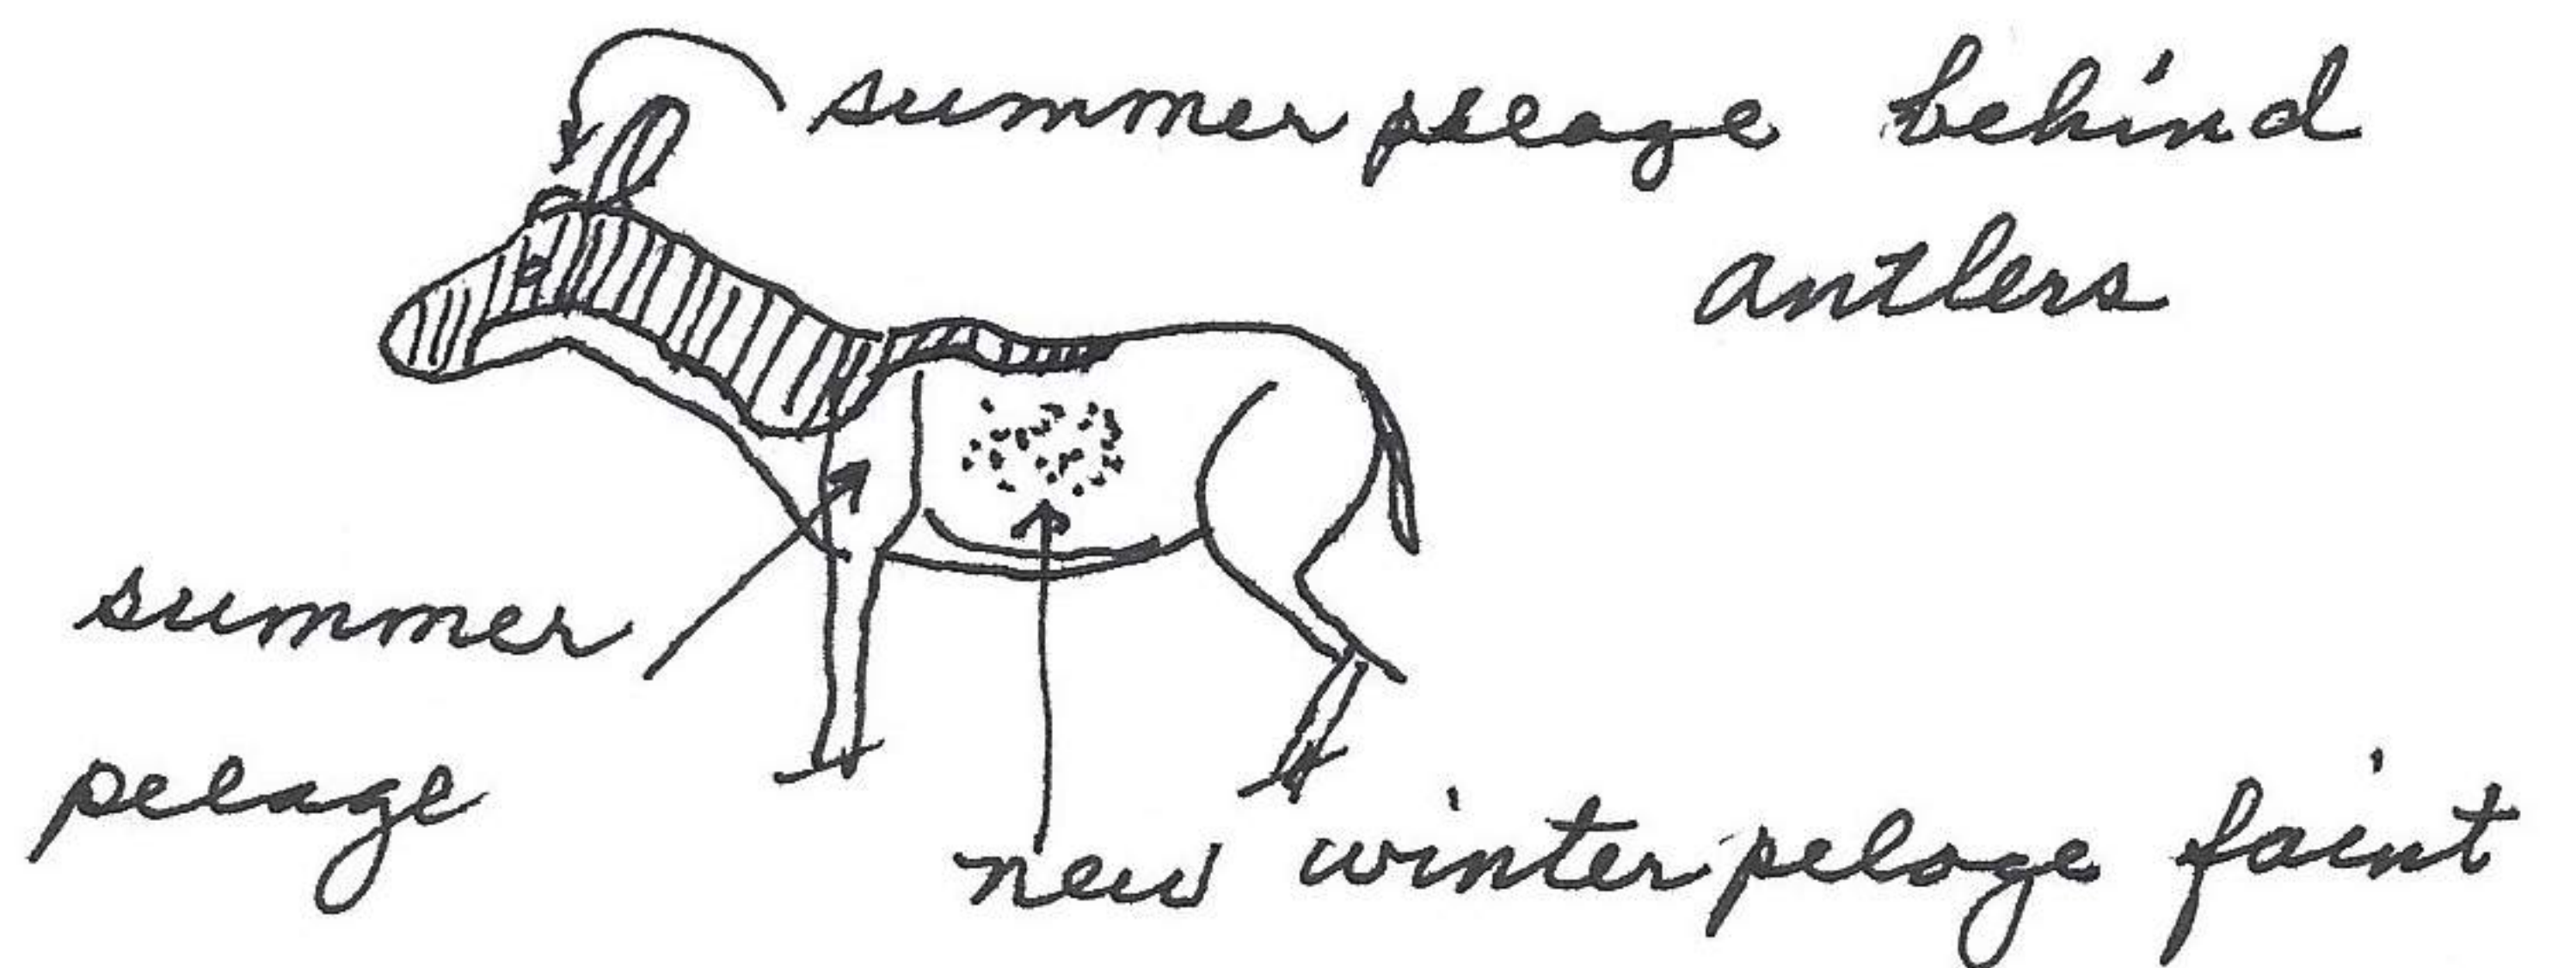 summer pelage behind
antlers
summer
pelage
new winter pelage faint